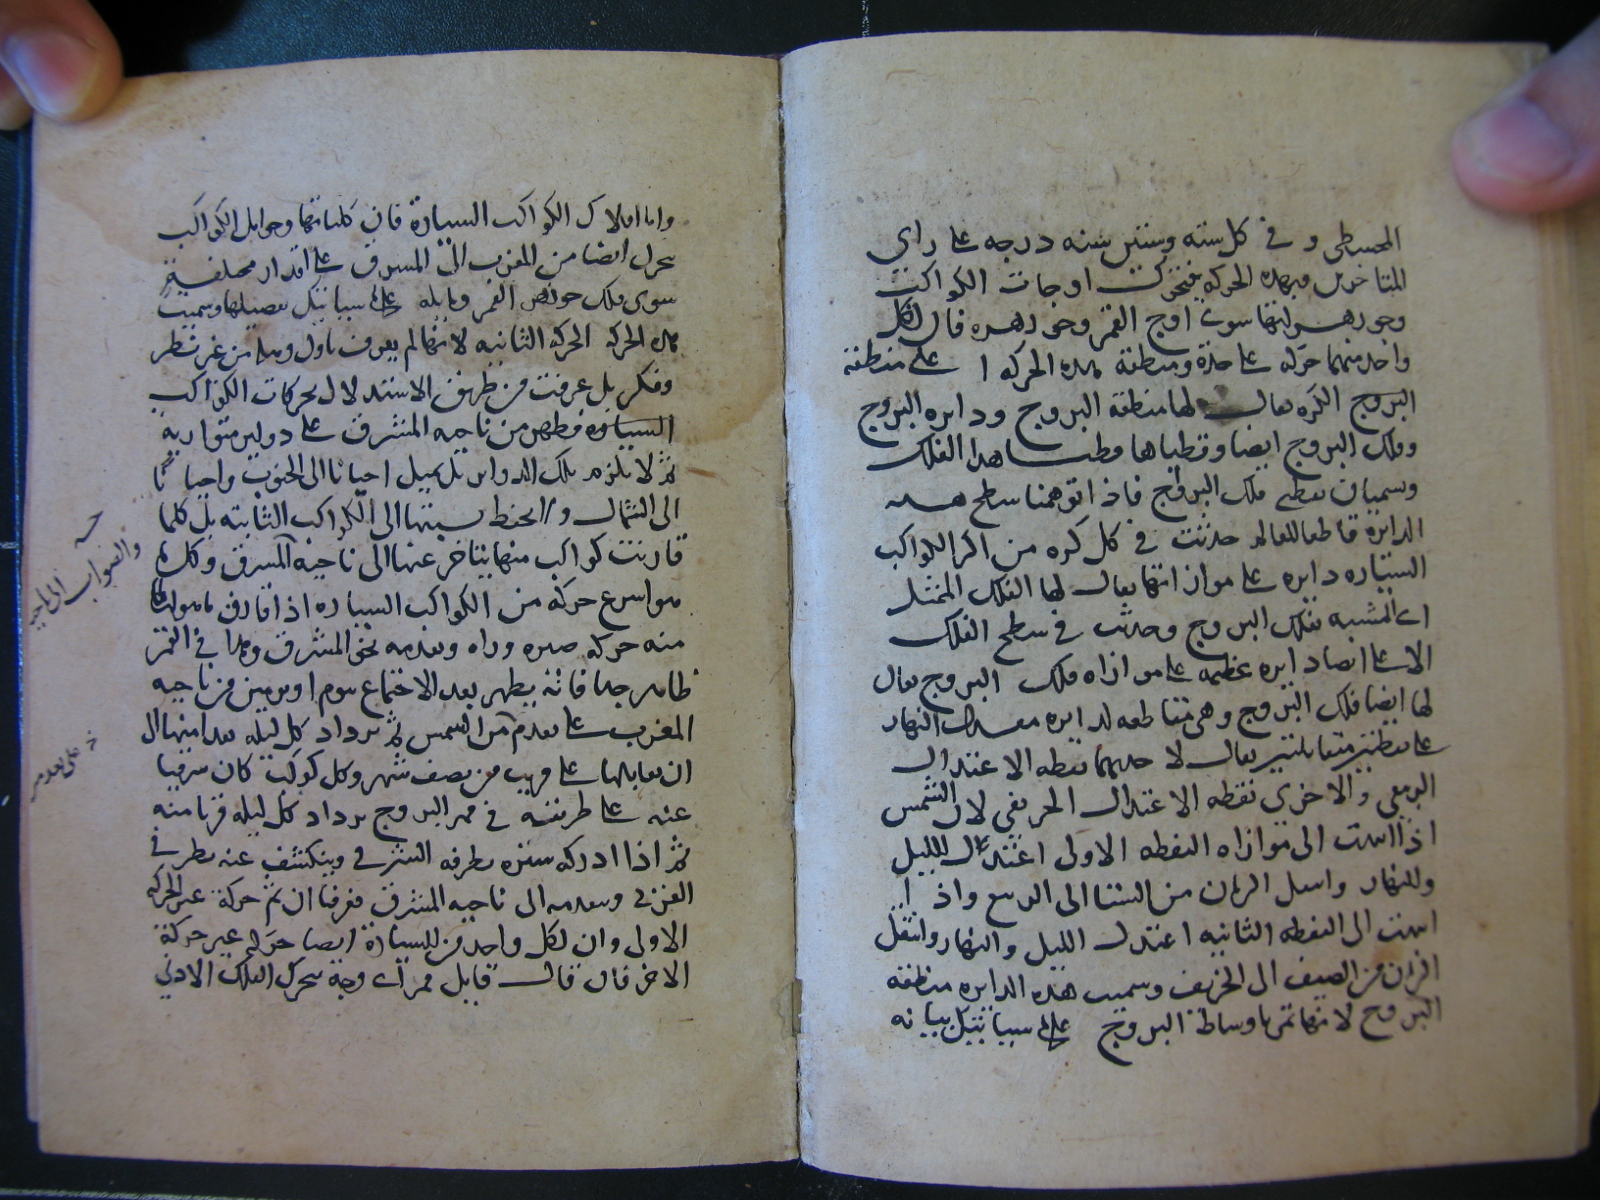 المجسطى و فى كل سته وستين سنه درجه على راى
المتاخرين وبهذه الحركه يتحرك اوجات الكواكب
وجوزهراتها سوى اوج القمر وجوزهره فان لكل
واحد منهما حركه على حدة ومنطقة هذه الحركه ا على منطقة
البروج الكره يقال لها منطقة البروج ودايره البروج
وفلك البروج ايضا وقطباها قطبا هذا الفلك
وسميان قطبى فلك البروج فاذا توهمنا سطح هذه
الدايرة قاطعا للعالم حدثت فى كل كره من اكر الكواكب
السيّاره دايره على موازاتها يقال لها الفلك الممثل
اى المشبه بفلك البروج وحدثت فى سطح الفلك
الاعلى ايضا دايره عظيمه على موازاه فلك البروج يقال
لها ايضا فلك البروج وهى متقاطعه لدايره معدل النهار
على نقطتين متقابلتين يقال لاحديهما نقطه الاعتدال
الربيعى والاخرى نقطه الاعتدال الخريفى لان الشمس
اذا انتهت الى موازاه النقطه الاولى اعتدل الليل
والنهار وانتقل الزمان من الشتا الى الربيع واذا
انتهت الى النقطه الثانيه اعتدل الليل والنهار وانتقل
الزمان من الصيف الى الخريف وسميت هذه الدايره منطقة
البروج لانها تمر باوساط البروج على ما سياتيك بيانه
واما افلاك الكواكب السيارة فان كلياتها وحوامل الكواكب
تتحرك ايضا من المغرب الى المشرق على اقدار مختلفة
سوى فلك جوزهر القمر ومايله على ما سياتيك تفصيلها وسميت
هذه الحركه الحركه الثانيه لانها لم يعرف باول وهله من غير نظر
وفكر بل عرفت من طريق الاستدلال بحركات الكواكب
السيارة فيظهر من ناحيه المشرق على دواير متوازية
ثم لا يلزم تلك الدواير بل يميل احيانا الى الجنوب واحيانا
الى الشمال ولا يحفظ نسبتها الى الكواكب الثابته بل كلما
قارنت كواكب منها يتاخر عنها الى ناحيه المشرق وكل ما
هو اسرع حركة من الكواكب السياره اذا قارن ما هو ابطا
منه حركه صيره وراه وتقدمه نحو المشرق وهذا فى القمر
ظاهر جدا فانه يظهر بعد الاجتماع بيوم او يومين من ناحيه
المغرب على تقدم من الشمس ثم يزداد كل ليله بعدا منها الى
ان يقابلها على قريب من نصف شهر وكل كوكب كان شرقيا
عنه على طريقته فى ممر البروج يزداد كل ليله قربا منه
ثم اذا ادركه ستره بطرفه الشرقى وينكشف عنه بطرفه
الغربى وتقدمه الى ناحيه المشرق فعرفنا ان ثم حركة غير الحركه
الاولى وان لكل واحد من السيارة ايضا حركه غير حركة
الاخر فان قال قايل فمن اى وجه يتحرك الفلك الادنى
والصواب الى ناحيه